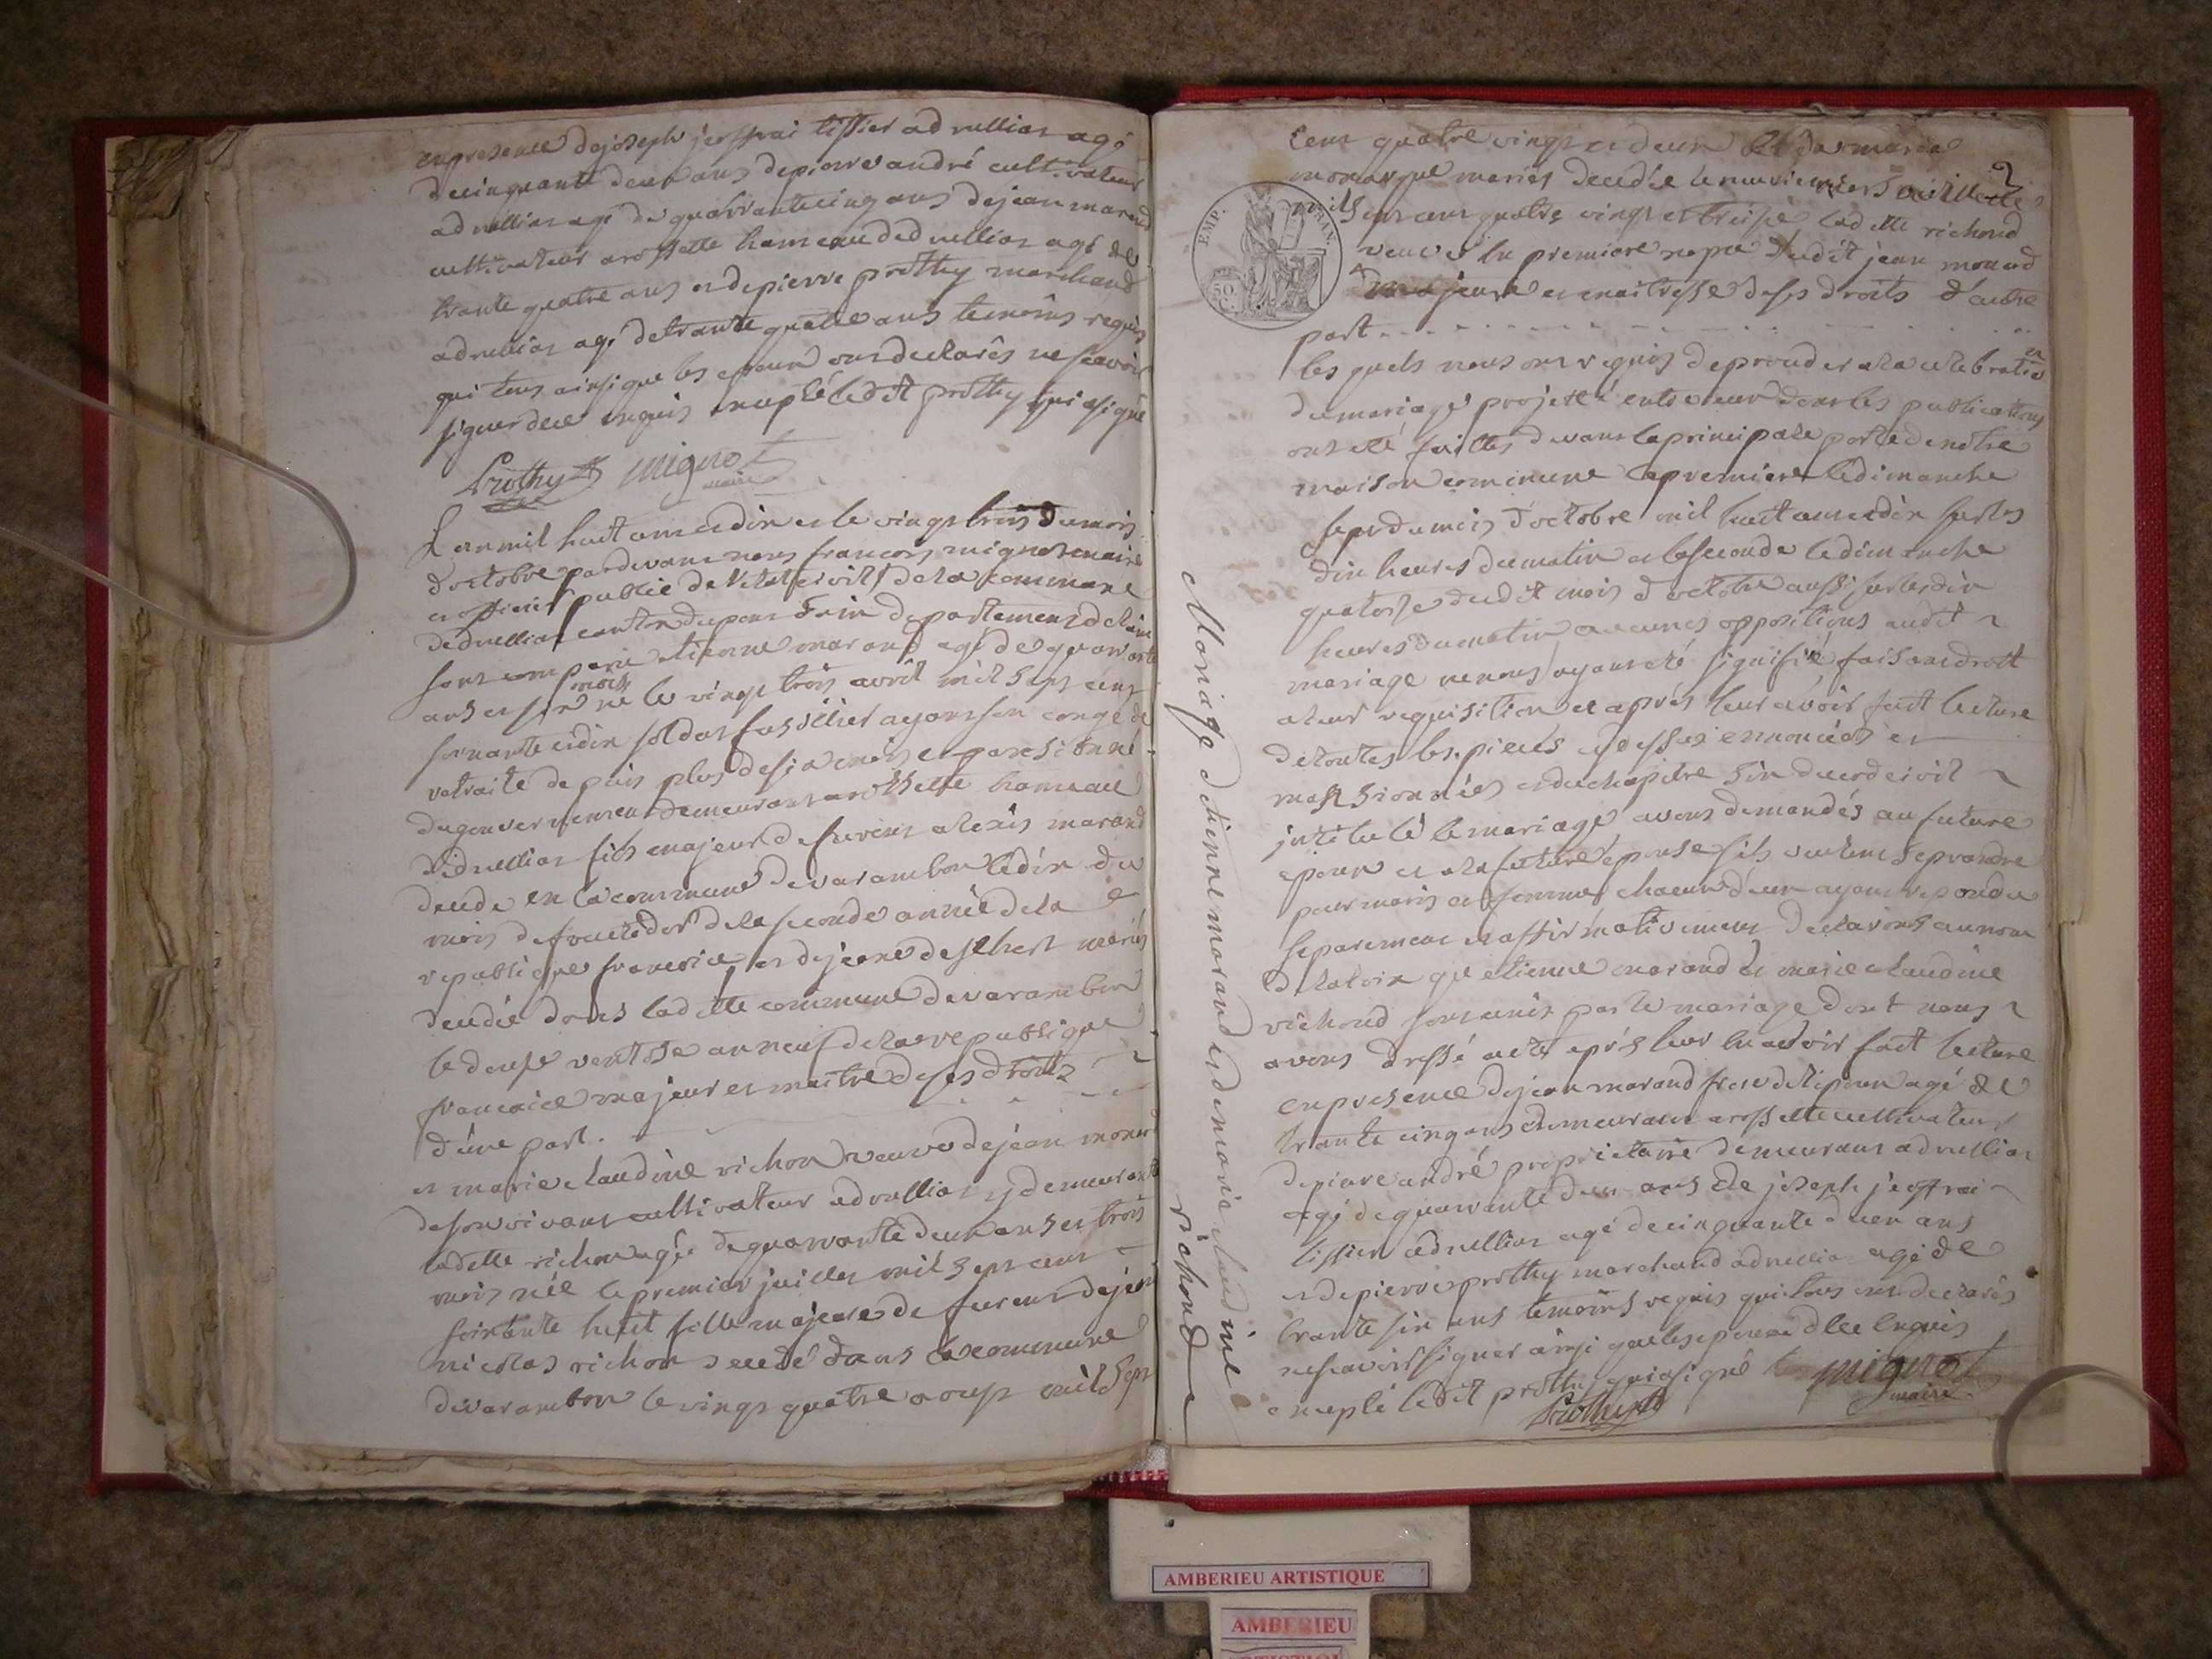 en presence de joseph jeoffrai tissier a druillias agé
de cinquante deux ans de pierre andré cultivateur
a druillias agé de quarrante cinq ans de jean marand
cultivateur a rossette hameau de druillias agé de
trante quatre ans et de pierre prothy marchand
a druillias agé de trante quatre ans temoins requis
qui tous ainsi que les epoux ont declarés ne scavoir
signer de ce enquis excepté ledit prothy qui a signé
Prothy mignot
maire
L'an mil huit cent et dix et le vingt trois du mois
d'octobre par devant nous francois mignot maire
et officier public de l'etat civil de la commune
de druillias canton du pont d'ain departement de l'ain
sont comparu etienne marand agé de quarante
ans et six mois né le vingt trois avril mil sept cent
soixante et dix soldat fusillier ayant son congé de
retraite depuis plus de six mois et pansionné
du gouvernement demeurant a rossette hameau
de druillias fils majeur de feu vens alexis marand
decede en la commune de varambon le dix du
mois de fructidor de la seconde année de la
republique francoise et de jeane deschert mariés
decedée dans laditte commune de varambon
le douse ventose an neuf de la republique
francoise majeur et maitre de ses droits
d'une part.
et marie claudine richon veuve de jean monard
de son vivant cultivateur a druillias y demeurante
laditte richon agée de quarrante deux ans et trois
mois née le premier juillet mil sept cent
soixante huit fille majeure de feu vens de jean
nicolas richon decedé dans la commune
de varambon le vingt quatre aoust mil sept
2
cent quatre vingt et deux et de marie
monarque mariés decedée le
mil sept cent quatre vingt et treise laditte richond
EMP. FRAN.
50. C.
veuve en premiere nopce dudit jean monard
majeure et maitresse de ses droits d'autre
part
les quels nous ont requis de proceder a la celebration
du mariage projetté entre eux dont les publications
ont eté faittes devant la principale porte de notre
maison commune la premiere le dimanche
sept du mois d'octobre mil huit cent et dix sur les
dix heures du matin et la seconde le dimanche
quatorse dudit mois d'octobre aussi sur les dix
heures du matin aucunes oppositions audit
mariage ne nous ayant eté signifié faisant droit
a leur requisition et aprés leur avoir fait lecture
de toutes les pieces cy dessus ennoncées et
mantionnées et du chapitre six du code civil
intitulé le mariage avons demandés au future
epoux et a la future epouse s'ils veulent se prandre
pour maris et femme chacun d'eux ayant repondu
separement et affirmativement declarons au nom
de la loix que etienne marand et marie claudine
richond sont unis par le mariage dont nous
avons dressé acte aprés leur en avoir fait lecture
en presence de jean marand frere de l'epoux agé de
trante cinq ans demeurant a rossette cultivateur
de pierre andré proprietaire demeurant a druillias
agé de quarrante deux ans de joseph jeoffrai
tissier a druillias agé de cinquante deux ans
et de pierre prothy marchand a druillias agé de
trante six ans temoins requis qui tous ont declarés
ne scavoir signer ainsi que les epoux de ce enquis
excepté ledit prothy qui a signé mignot
Prothy maire
Mariage d'etienne marand et de marie claudine
richond
AMBERIEU ARTISTIQUE
AMBERIEU
ARTISTIQUE